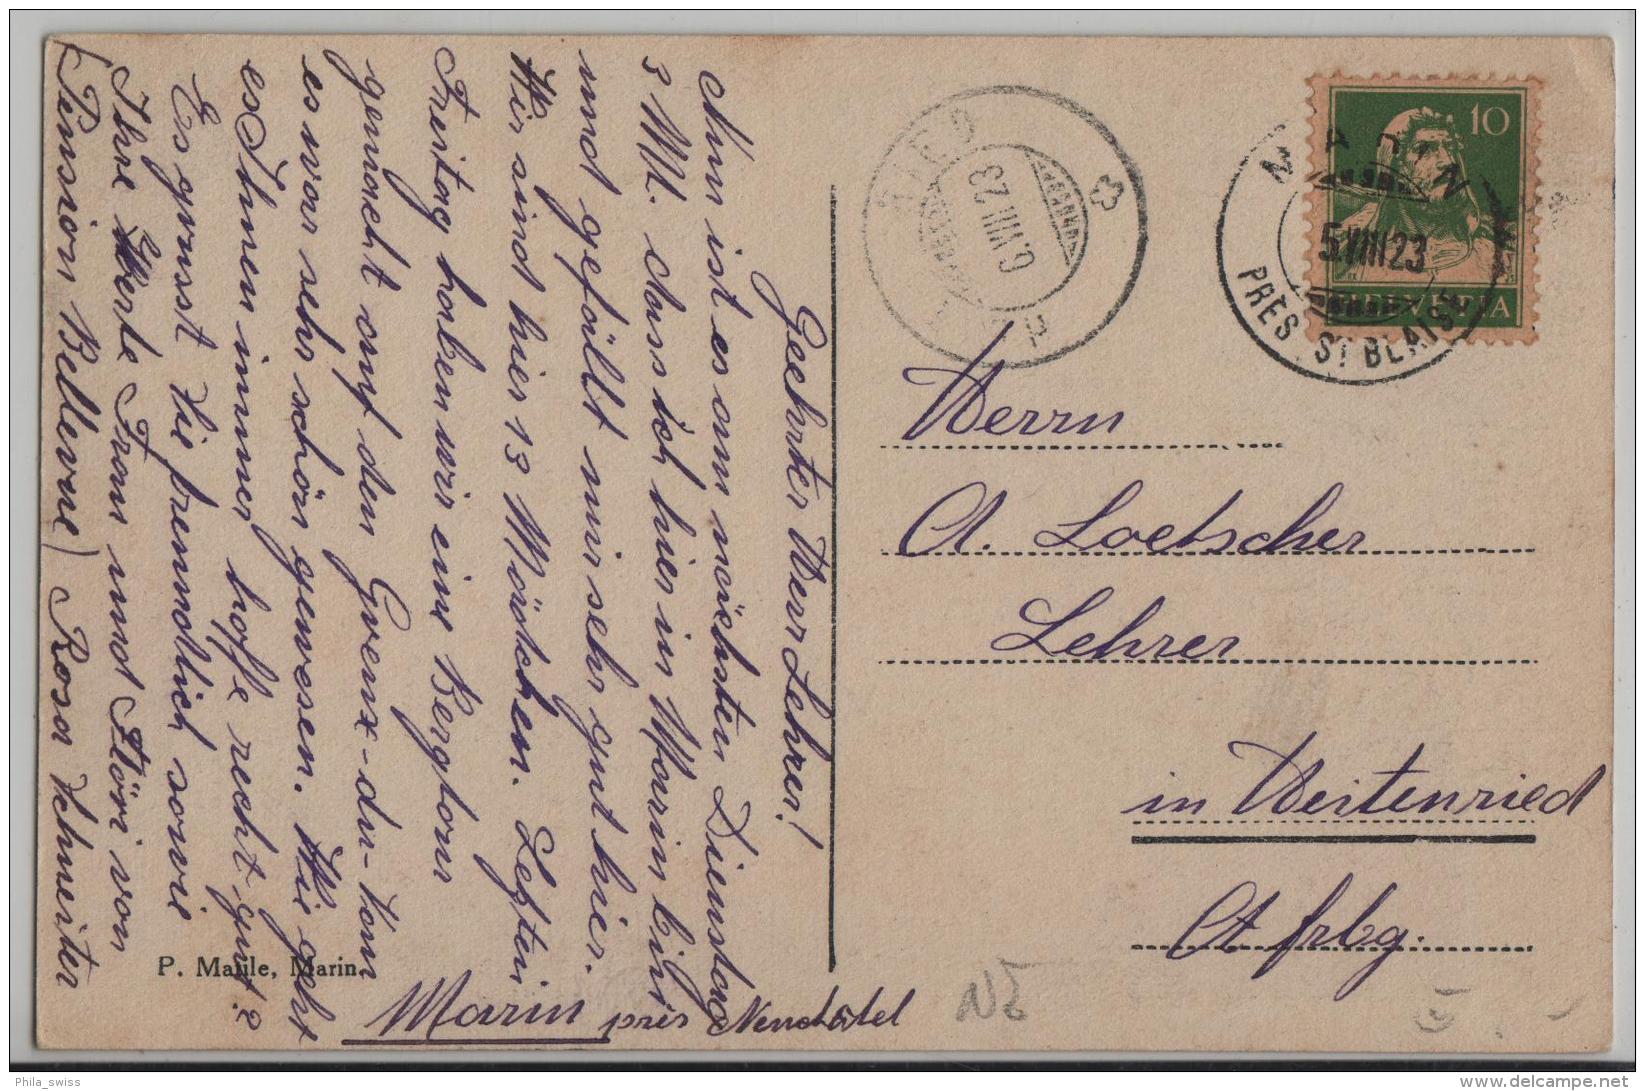 Geehrter Herr Lehrer!
Nun ist es am nächsten Dienstag
3 M. dass ich hier in Marin bin
und gefällt mir sehr gut hier.
Wir sind hier 13 Mädchen. Letzten
Freitag haben wir eine Bergtour
gemacht auf den Greux-du-Vom
es war sehr schön gewesen. Wie geht
es Ihnen immer hoffe recht gut?
Es grüsst Sie freundlich sowie
Ihre Werte Frau und Flöri von
(Pension Bellevue) Rosa Schneiter
Marin près Neuchâtel
P. Matile, Marin.
Herrn
A. Loetscher
Lehrer
in Weitenried
Ct. frbg.
RIED
6.VIII.23
MARIN
5.VIII.23
PRES ST BLAISE
10
HELVETIA
NE
Phila_swiss
delcampe.net